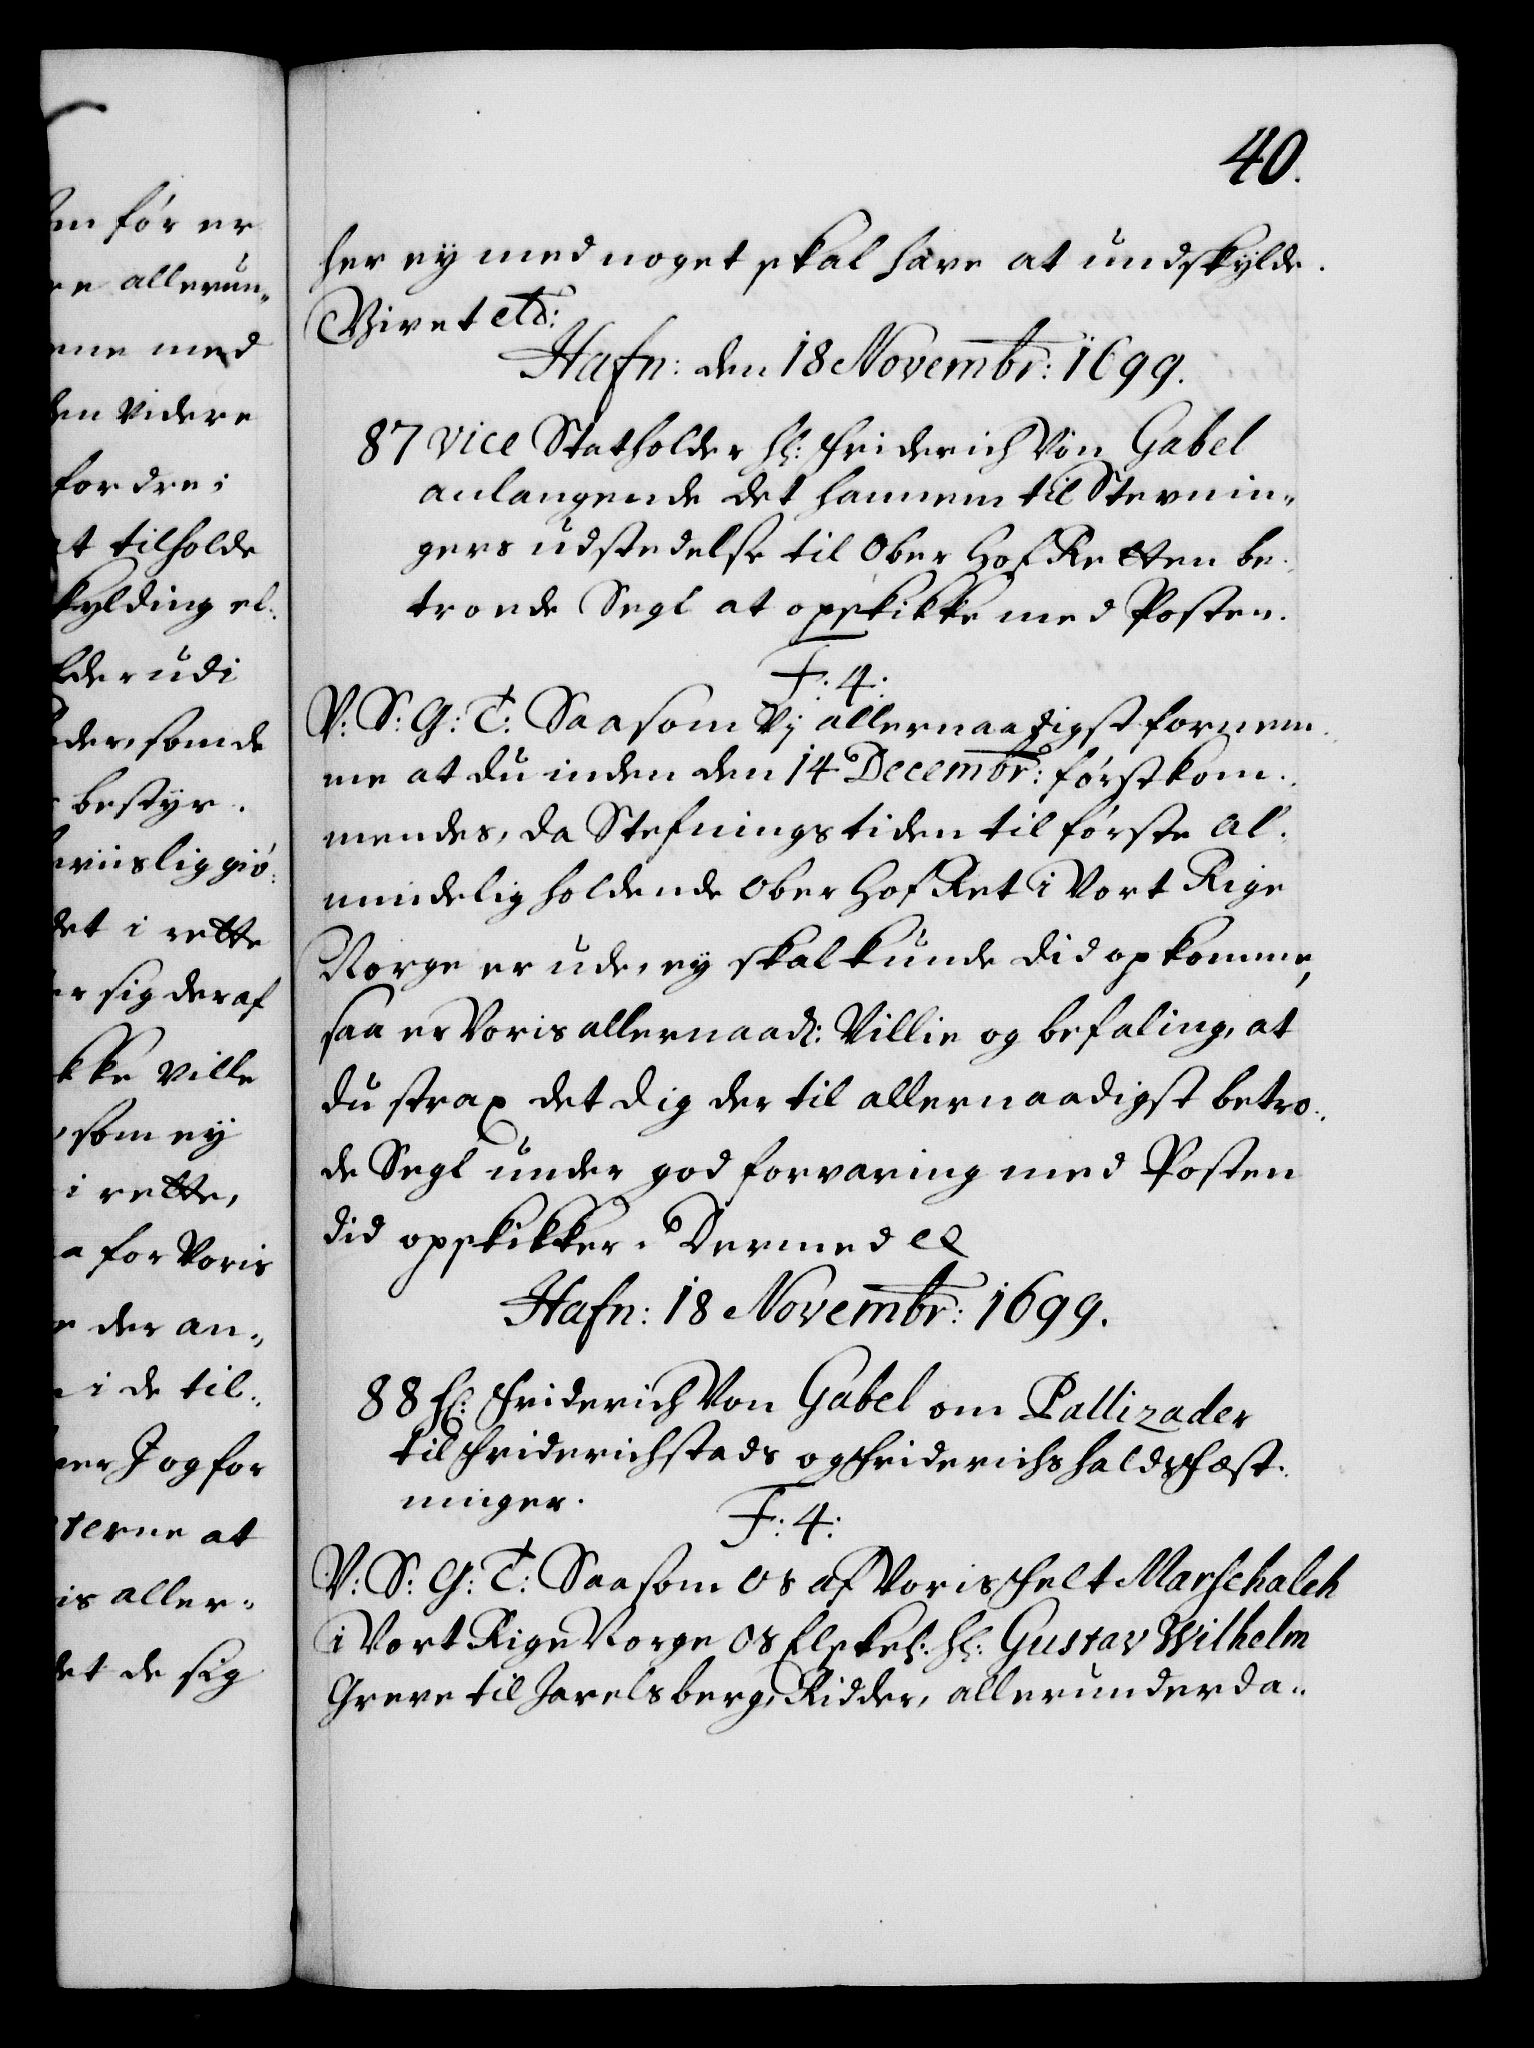 40.
her ey med noget skal have at undskylde.
Vivet etc:
Hafn: den 18 Novembr: 1699.
87 Vice Statholder Hl: Friderich Von Gabel
anlangende det hannem til Stevnin„
gers udstedelse til Ober Hof Retten be„
troede Segl at opskikke med Posten.
F: 4:
V: S: G: T: Saasom Vj allernaadigst fornem„
me at du inden den 14 Decembr: førstkom„
mendes, da Stefnings tiden til første Al„
mindelig holdende Ober Hof Ret i Vort Rige
Norge er ude, ey skal kunde did opkomme,
saa er Voris allernaad: Villie og befaling, at
du strax det dig der til allernaadigst betro„
de Segl under god forvaring med Posten
did opskikker. Dermed ec
Hafn: 18 Novembr: 1699.
88 Hl: Friderich Von Gabel om Pallizader
til Friderichstads og Friderichshalds Fæst„
ninger.
F: 4:
V: S: G: T: Saasom Os af Voris Felt Marschalch
i Vort Rige Norge Os Elskel: Hl: Gustav Wilhelm
Greve til Jarelsberg, Ridder, allerunderda„
for er
allerun„
med
videre
fordre i
at tilholde
el„
udi
som de
bestyr„
det i rette
sig deraf
ville
som ey
i rette,
for Voris
der an„
i de til„
og for
at
aller„
det de sig